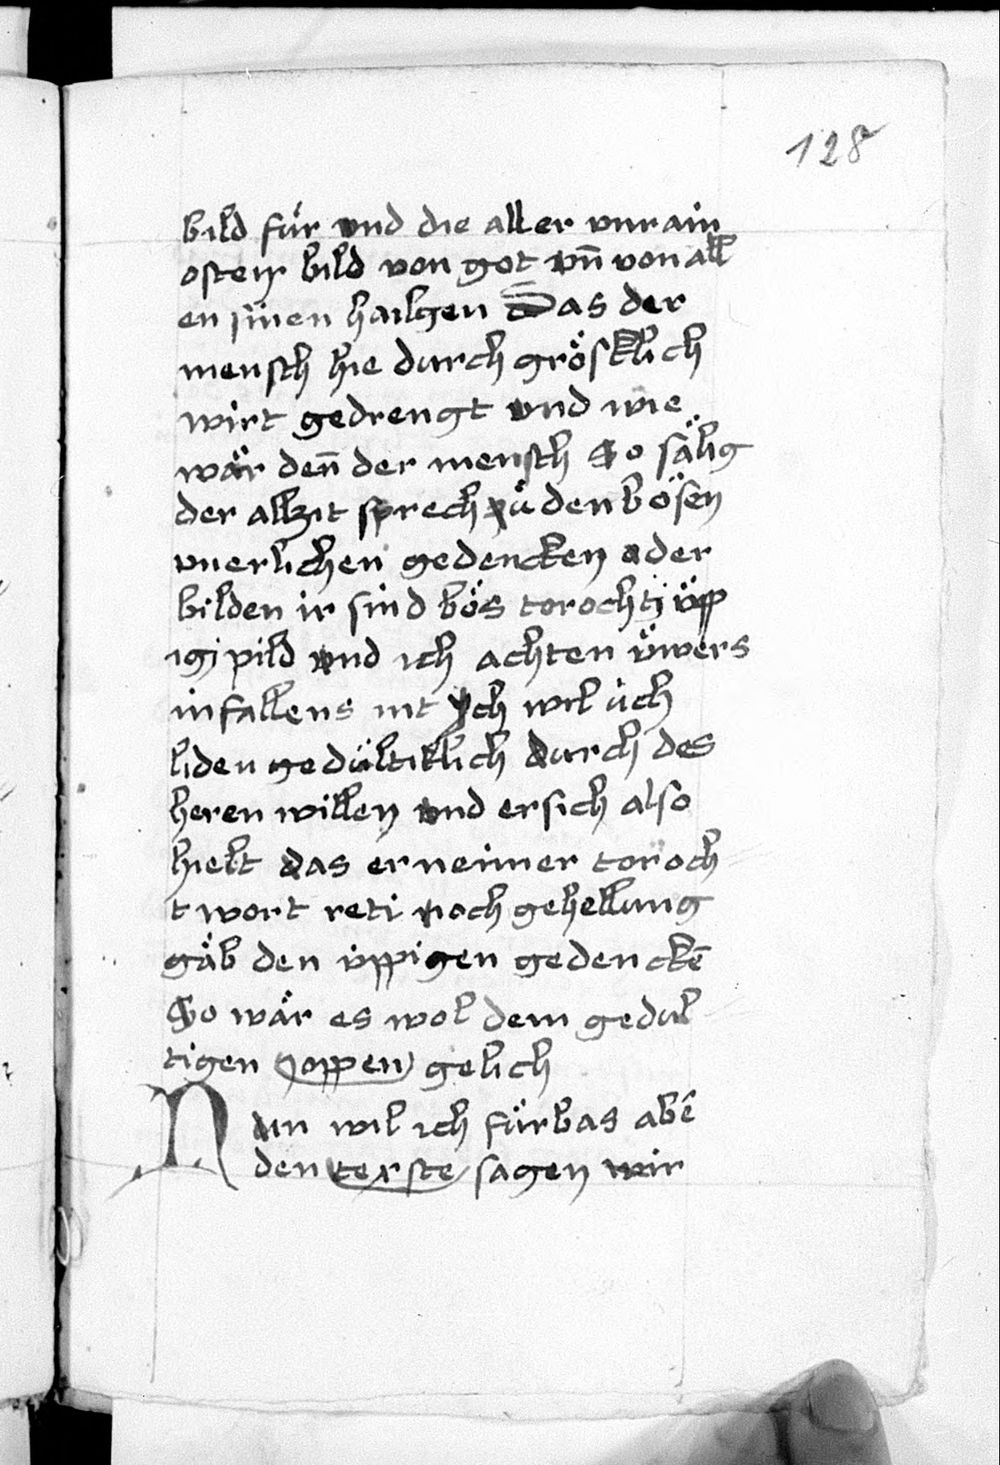 128
bild fúr vnd die aller vnrain
osten bild von got vn̄ von all
en sinen hailgen Das der
mensch hie durch grösklich
wirt gedrengt vnd wie
wär den̄ der mensch So sälig
der allzit sprech zů den bösen
vnerlichen gedencken oder
bilden ir sind bös torochti üpp
igi pild vnd ich achten üwers
infallens nit Jch wil üch
liden gedültiklich durch des
heren willen vnd er sich also
hielt das er neimer toroch
t wort reti noch gehellung
gäb den üppigen gedenckē
So wär es wol dem gedul
tigen Joppen gelich
Nun wil ich fürbas abē
den texste sagen wir